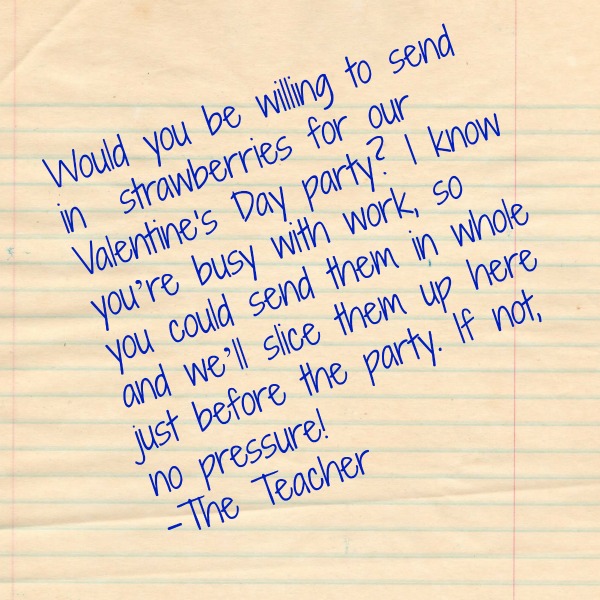 Would you be willing to send
in strawberries for our
Valentine's Day party? I know
you're busy with work, so
you could send them in whole
and we'll slice them up here
just before the party. If not,
no pressure!
-The Teacher